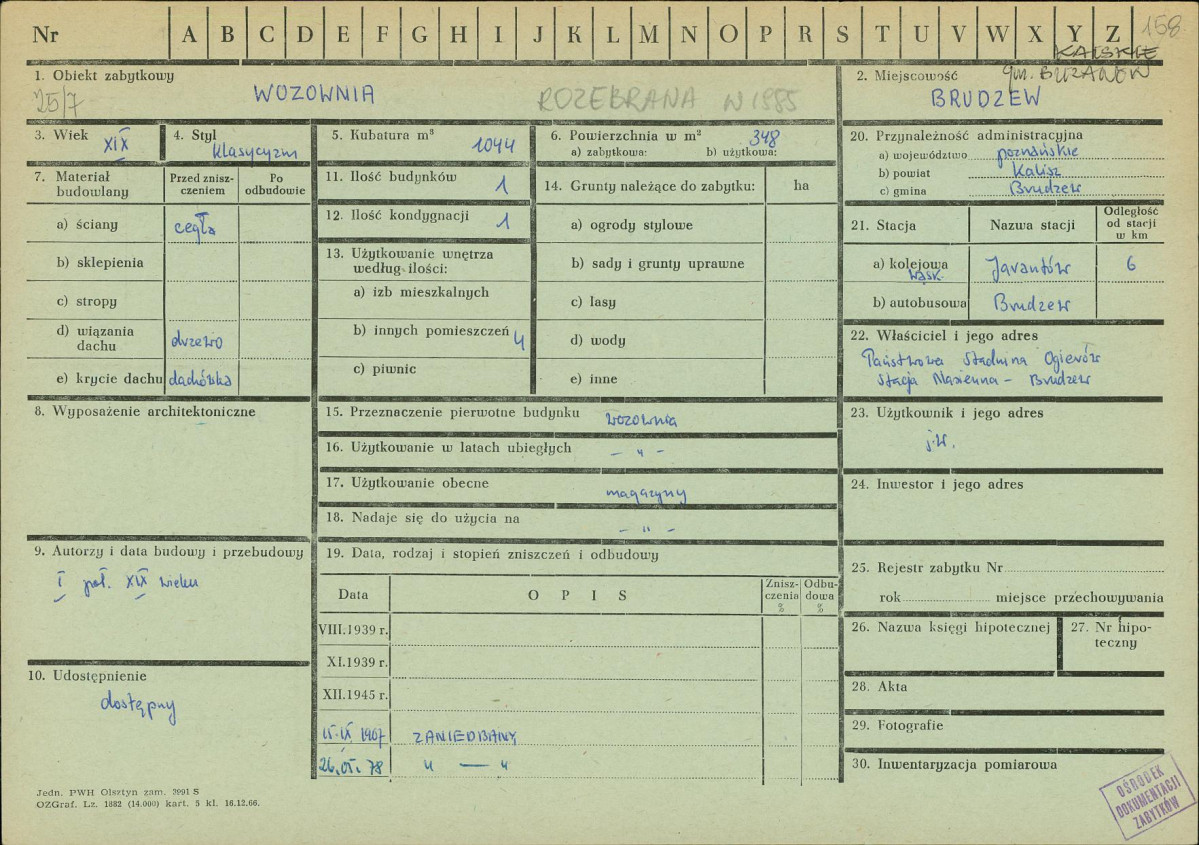 Nr A B C D E F G H I J K L M N O P R S T U V W X Y Z 158
KALISKIE
1. Obiekt zabytkowy
25/7 WOZOWNIA ROZEBRANA W 1985
2. Miejscowość gm. BLIZANÓW
BRUDZEW
3. Wiek XIX
4. Styl klasycyzm
5. Kubatura m³ 1044
6. Powierzchnia w m² 348
a) zabytkowa: b) użytkowa:
7. Materiał budowlany
Przed zniszczeniem
Po odbudowie
a) ściany cegła
b) sklepienia
c) stropy
d) wiązania dachu drzewo
e) krycie dachu dachówka
8. Wyposażenie architektoniczne
9. Autorzy i data budowy i przebudowy
I poł. XIX wieku
10. Udostępnienie
dostępny
11. Ilość budynków 1
12. Ilość kondygnacji 1
13. Użytkowanie wnętrza według ilości:
a) izb mieszkalnych
b) innych pomieszczeń 4
c) piwnic
14. Grunty należące do zabytku: ha
a) ogrody stylowe
b) sady i grunty uprawne
c) lasy
d) wody
e) inne
15. Przeznaczenie pierwotne budynku wozownia
16. Użytkowanie w latach ubiegłych – " –
17. Użytkowanie obecne magazyny
18. Nadaje się do użycia na – " –
19. Data, rodzaj i stopień zniszczeń i odbudowy
Data O P I S Zniszczenia % Odbudowa %
VIII.1939 r.
XI.1939 r.
XII.1945 r.
15.IX.1967 ZANIEDBANY
26.01.78 " — "
20. Przynależność administracyjna
a) województwo poznańskie
b) powiat Kalisz
c) gmina Brudzew
21. Stacja Nazwa stacji Odległość od stacji w km
a) kolejowa wąsk. Jarantów 6
b) autobusowa Brudzew
22. Właściciel i jego adres
Państwowa Stadnina Ogierów
Stacja Nasienna – Brudzew
23. Użytkownik i jego adres
j.w.
24. Inwestor i jego adres
25. Rejestr zabytku Nr
rok miejsce przechowywania
26. Nazwa księgi hipotecznej
27. Nr hipoteczny
28. Akta
29. Fotografie
30. Inwentaryzacja pomiarowa
OŚRODEK
DOKUMENTACJI
ZABYTKÓW
Jedn. PWH Olsztyn zam. 2991 S
OZGraf. Lz. 1882 (14.000) kart. 5 kl. 16.12.66.